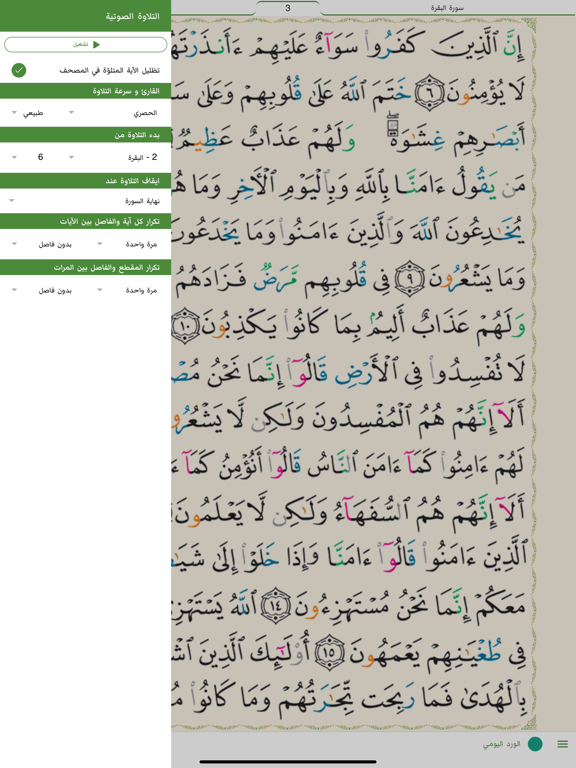 سورة البقرة
3
التلاوة الصوتية
تشغيل
تظليل الآية المتلوّة في المصحف
القارئ و سرعة التلاوة
الحصري
طبيعي
بدء التلاوة من
2 - البقرة
6
ايقاف التلاوة عند
نهاية السورة
تكرار كل آية والفاصل بين الأيات
مرة واحدة
بدون فاصل
تكرار المقطع والفاصل بين المرات
مرة واحدة
بدون فاصل
إِنَّ ٱلَّذِينَ كَفَرُوا۟ سَوَآءٌ عَلَيْهِمْ ءَأَنذَرْتَهُ
لَا يُؤْمِنُونَ ٦ خَتَمَ ٱللَّهُ عَلَىٰ قُلُوبِهِمْ وَعَلَىٰ سَ
أَبْصَـٰرِهِمْ غِشَـٰوَةٌ وَلَهُمْ عَذَابٌ عَظِيمٌ
مَن يَقُولُ ءَامَنَّا بِٱللَّهِ وَبِٱلْيَوْمِ ٱلْـَٔاخِرِ وَمَا هُ
يُخَـٰدِعُونَ ٱللَّهَ وَٱلَّذِينَ ءَامَنُوا۟ وَمَا يَخْدَعُونَ
وَمَا يَشْعُرُونَ ٩ فِى قُلُوبِهِم مَّرَضٌ فَزَادَهُمُ
وَلَهُمْ عَذَابٌ أَلِيمٌۢ بِمَا كَانُوا۟ يَكْذِبُونَ ١٠
لَا تُفْسِدُوا۟ فِى ٱلْأَرْضِ قَالُوٓا۟ إِنَّمَا نَحْنُ مُصْ
أَلَآ إِنَّهُمْ هُمُ ٱلْمُفْسِدُونَ وَلَـٰكِن لَّا يَشْعُرُو
لَهُمْ ءَامِنُوا۟ كَمَآ ءَامَنَ ٱلنَّاسُ قَالُوٓا۟ أَنُؤْمِنُ كَمَآ ءَ
أَلَآ إِنَّهُمْ هُمُ ٱلسُّفَهَآءُ وَلَـٰكِن لَّا يَعْلَمُونَ
ٱلَّذِينَ ءَامَنُوا۟ قَالُوٓا۟ ءَامَنَّا وَإِذَا خَلَوْا۟ إِلَىٰ شَيَـٰ
مَعَكُمْ إِنَّمَا نَحْنُ مُسْتَهْزِءُونَ ١٤ ٱللَّهُ يَسْتَهْزِ
فِى طُغْيَـٰنِهِمْ يَعْمَهُونَ ١٥ أُو۟لَـٰٓئِكَ ٱلَّذِينَ ٱشْ
بِٱلْهُدَىٰ فَمَا رَبِحَت تِّجَـٰرَتُهُمْ وَمَا كَانُوا۟ مُ
الورد اليومي